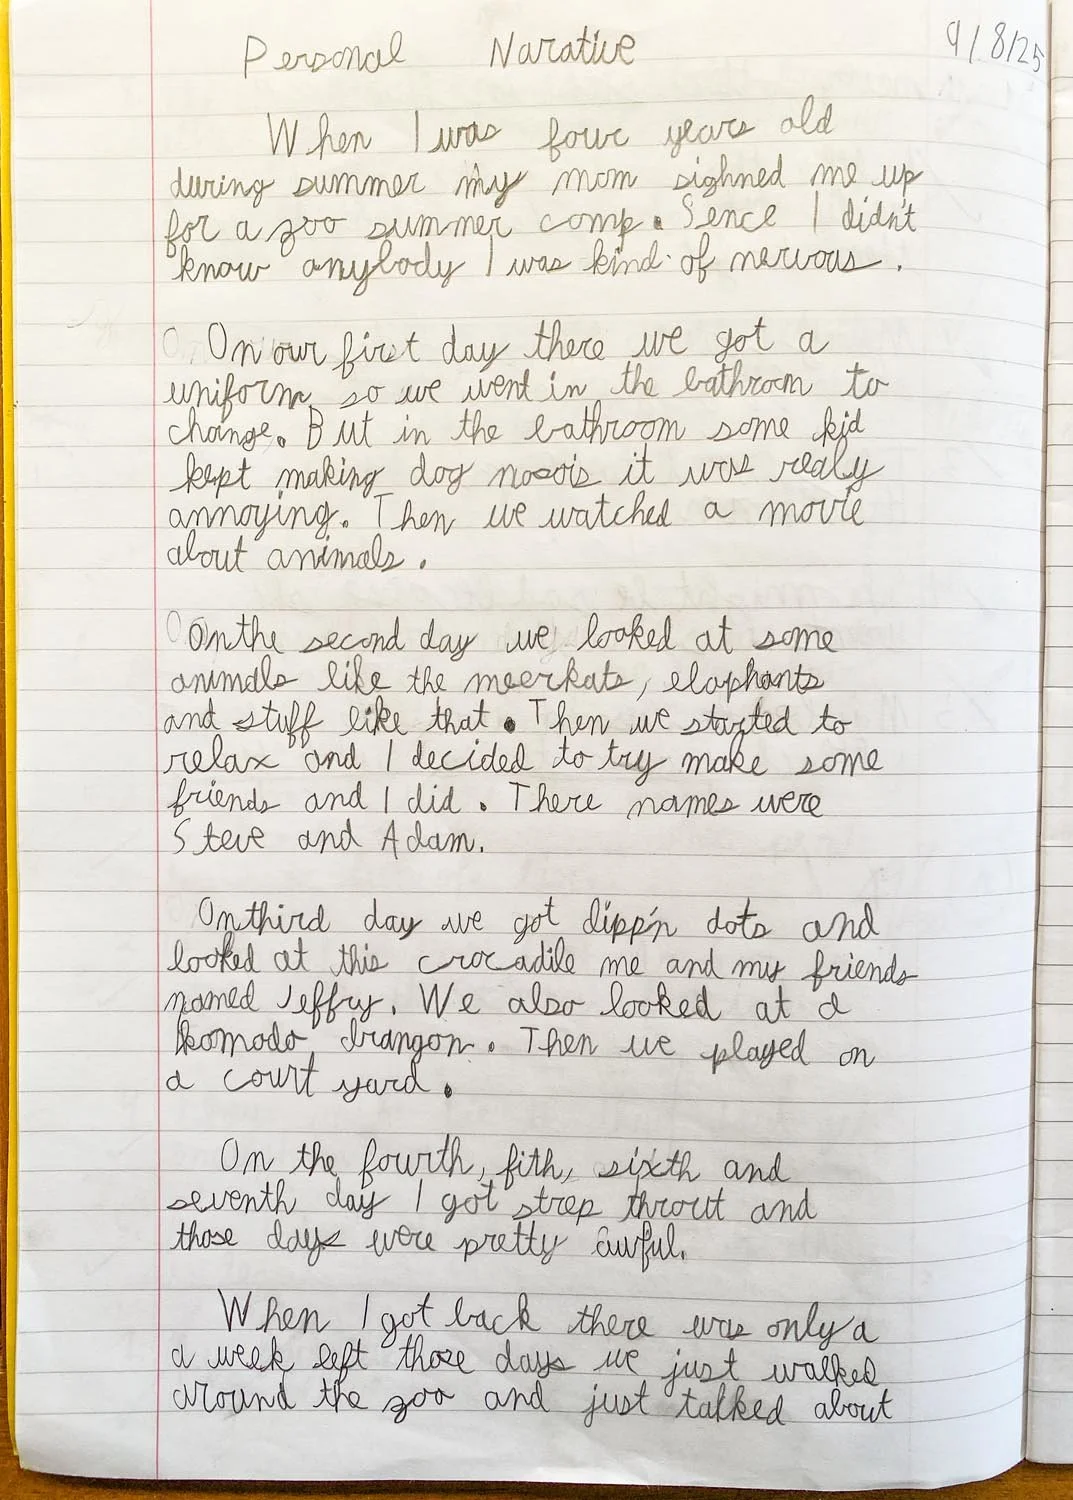 Personal Narative
9/8/25
When I was four years old
during summer my mom sighned me up
for a zoo summer camp. Sence I didn't
know anybody I was kind of nervous.
On our first day there we got a
uniform so we went in the bathroom to
change. But in the bathroom some kid
kept making dog nosois it was realy
annoying. Then we watched a movie
about animals.
On the second day we looked at some
animals like the meerkats, elaphants
and stuff like that. Then we started to
relax and I decided to try make some
friends and I did. There names were
Steve and Adam.
On third day we got dipp'n dots and
looked at this crocadile me and my friends
named Jeffry. We also looked at a
komodo drangon. Then we played on
a court yard.
On the fourth, fith, sixth and
seventh day I got strep throut and
those days were pretty awful.
When I got back there was only a
a week left those days we just walked
around the zoo and just talked about